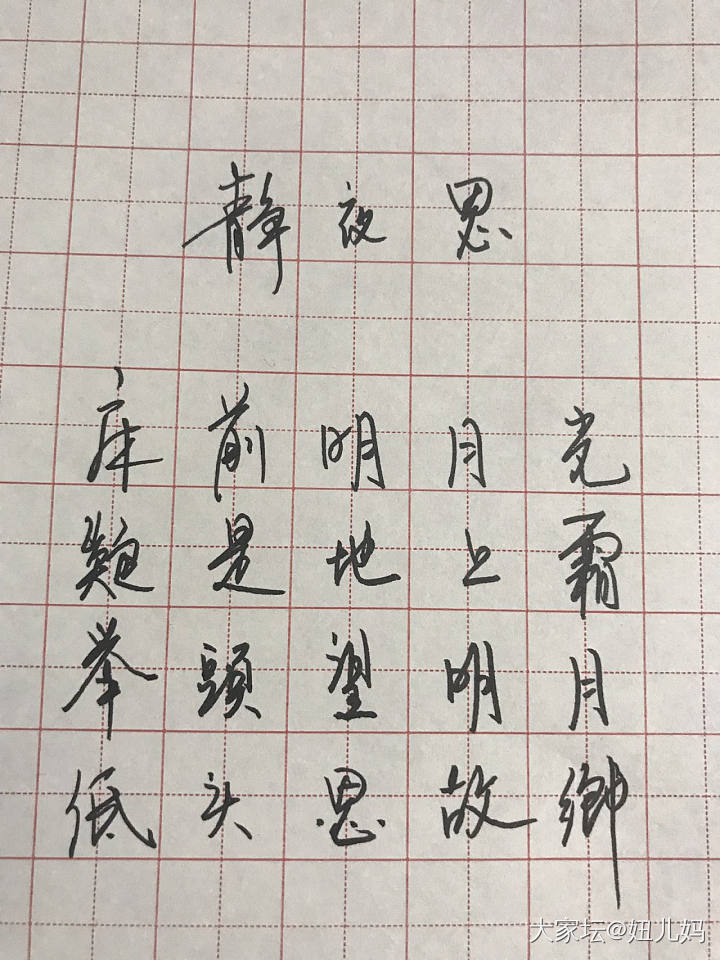 静夜思
床前明月光
疑是地上霜
举頭望明月
低头思故鄉
大家坛@妞儿妈